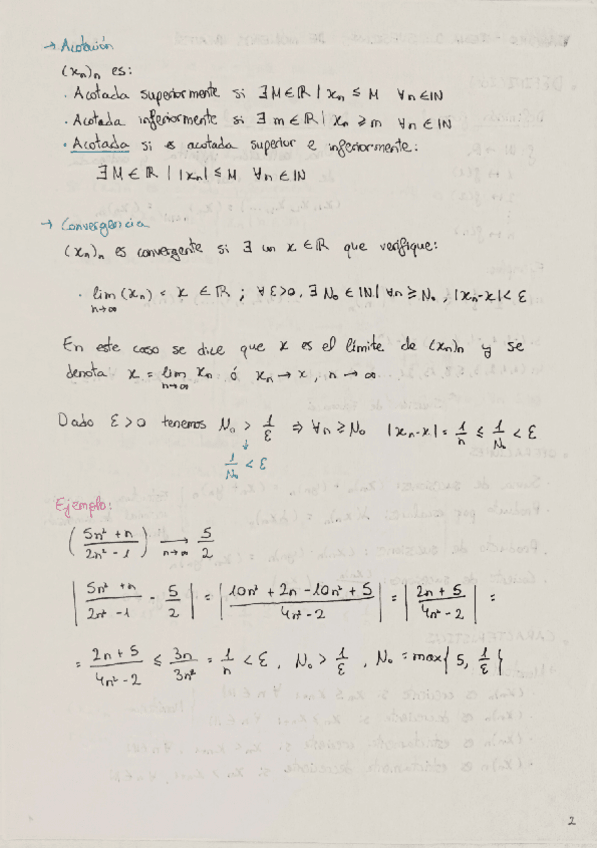 → Acotación
(xn)n es:
· Acotada superiormente si ∃M∈ℝ | xn ≤ M ∀n∈ℕ
· Acotada inferiormente si ∃m∈ℝ | xn ≥ m ∀n∈ℕ
· Acotada si es acotada superior e inferiormente:
∃M∈ℝ | |xn| ≤ M ∀n∈ℕ
→ Convergencia
(xn)n es convergente si ∃ un x∈ℝ que verifique:
· lim n→∞ (xn) = x ∈ ℝ ; ∀ε>0, ∃ N₀∈ℕ | ∀n ≥ N₀, |xn-x| < ε
En este caso se dice que x es el límite de (xn)n y se
denota x = lim n→∞ xn ó xn → x, n → ∞
Dado ε>0 tenemos N₀ > 1/ε ⇒ ∀n ≥ N₀ |xn-x| = 1/n ≤ 1/N₀ < ε
↓
1/N₀ < ε
Ejemplo:
((5n² + n)/(2n² - 1)) → n→∞ 5/2
|(5n² + n)/(2n² - 1) - 5/2| = |(10n² + 2n - 10n² + 5)/(4n² - 2)| = |(2n + 5)/(4n² - 2)| =
= (2n + 5)/(4n² - 2) ≤ 3n/3n² = 1/n < ε, N₀ > 1/ε, N₀ = max{5, 1/ε}
2